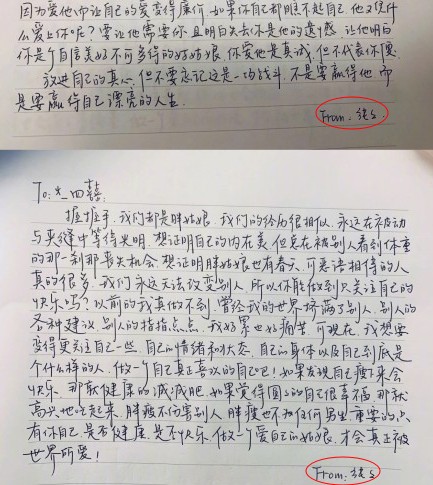 因为爱他而让自己的爱变得廉价.如果你自己都瞧不起自己.他又凭什
么爱上你呢？要让他需要你且明白失去你是他的遗憾.让他明白
你是个自信美好不可多得的好姑娘.你爱他是真诚.但不代表你傻.
放进自己的真心.但不要忘记这是一场战斗.不是要赢得他.而
是要赢得自己漂亮的人生.
From.
To:
握握手.我们都是胖姑娘.我们的经历很相似.永远在被动
与夹缝中等待光明.想证明自己的内在美.但总在被别人看到体重
的那一刹那丧失机会.想证明胖姑娘也有春天.可恶语相待的人
真的很多.我们永远无法改变别人.所以你能做到只关注自己的
快乐吗？以前的我真做不到.曾经我的世界挤满了别人.别人的
各种建议.别人的指指点点.我好累也好痛苦.可现在.我想要
变得更关注自己一些.自己的情绪和状态.自己的身体以及自己到底是
个什么样的人.做一个自己真正喜欢的自己吧！如果发现自己瘦下来会
快乐.那就健康的减减肥.如果觉得圆的自己很幸福.那就
高兴地吃起来.胖瘦不伤害别人.胖瘦也不为任何男生.重要的.只
有你自己.是否健康.是否快乐.做一个爱自己的姑娘.才会真正被
世界所爱！
From.